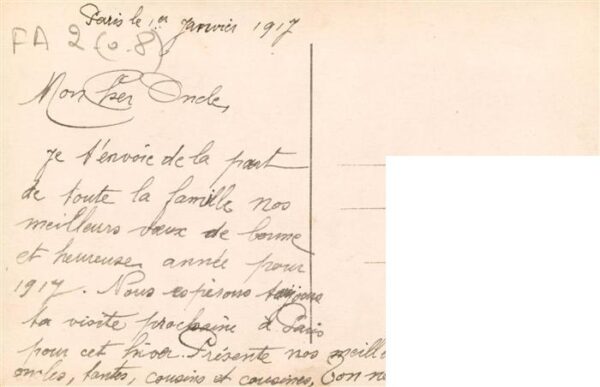 Paris le 1er Janvier 1917
FA 2 (0.8)
Mon Cher Oncle,
Je t'envoie de la part
de toute la famille nos
meilleurs vœux de bonne
et heureuse année pour
1917. Nous espérons toujours
ta visite prochaine à Paris
pour cet hiver. Présente nos meill
oncles, tantes, cousins et cousines, Ton ne